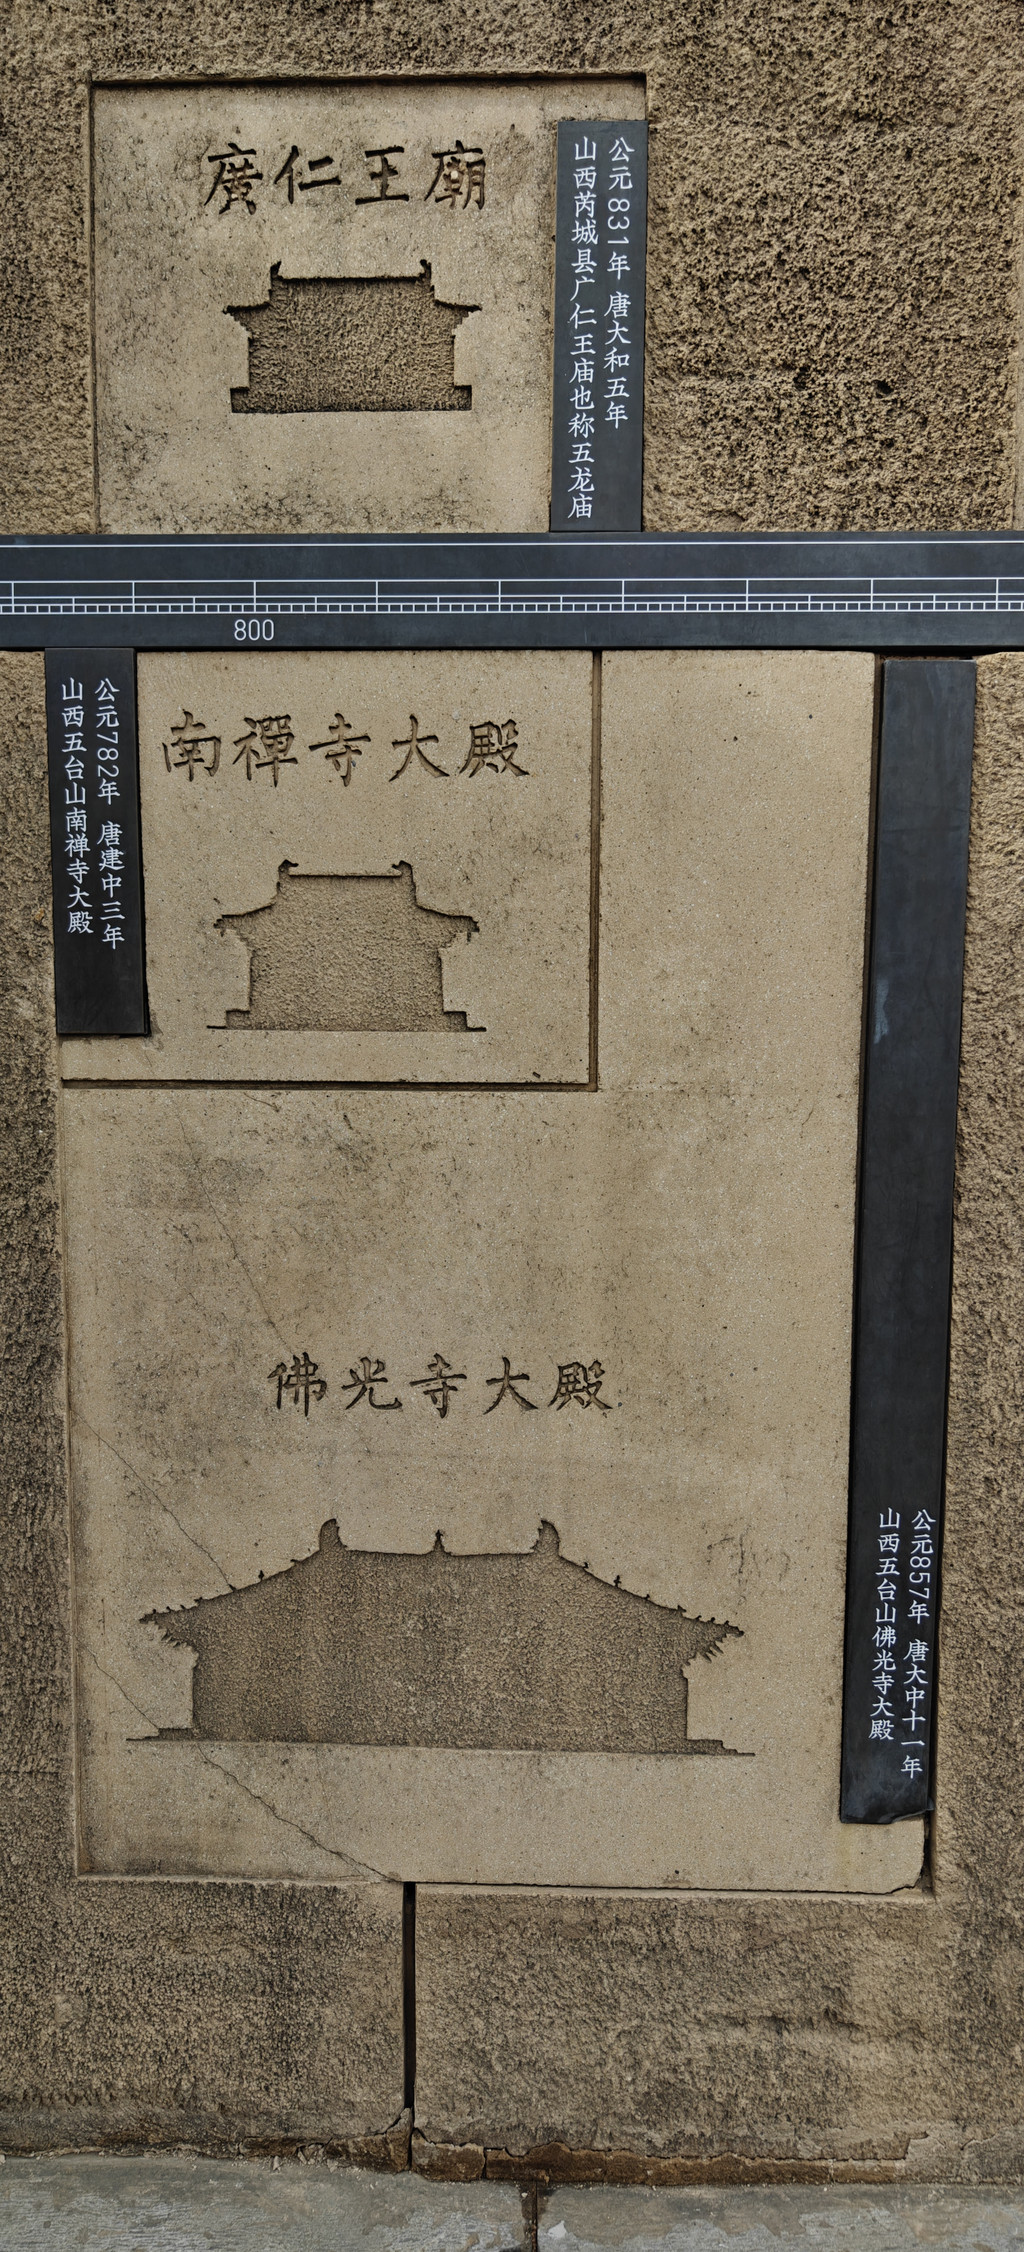 廣仁王廟
公元831年 唐大和五年
山西芮城县广仁王庙也称五龙庙
800
公元782年 唐建中三年
山西五台山南禅寺大殿
南禪寺大殿
佛光寺大殿
公元857年 唐大中十一年
山西五台山佛光寺大殿